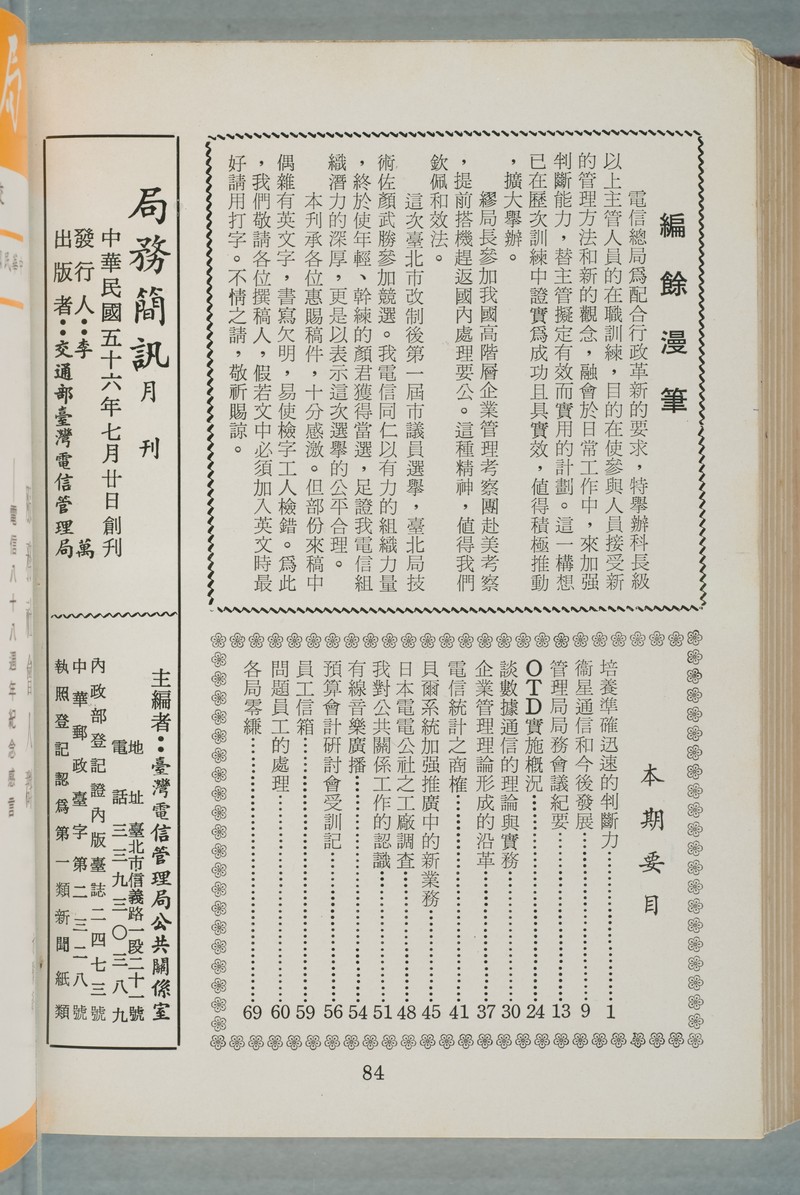 編餘漫筆
電信總局爲配合行政革新的要求，特舉辦科長級
以上主管人員的在職訓練，目的在使參與人員接受新
的管理方法和新的觀念，融會於日常工作中，來加强
判斷能力，替主管擬定有效而實用的計劃。這一構想
已在歷次訓練中證實爲成功且具實效，値得積極推動
，擴大舉辦。
繆局長參加我國高階層企業管理考察團赴美考察
，提前搭機趕返國內處理要公。這種精神，値得我們
欽佩和效法。
這次臺北市改制後第一屆市議員選舉，臺北局技
術佐顏武勝參加競選。我電信同仁以有力的組織力量
，終於使年輕、幹練的顏君獲得當選，足證我電信組
織潛力的深厚，更是以表示這次選舉的公平合理。
本刊承各位惠賜稿件，十分感激。但部份來稿中
偶雜有英文字，書寫欠明，易使檢字工人檢錯。爲此
，我們敬請各位撰稿人，假若文中必須加入英文時最
好請用打字。不情之請，敬祈賜諒。
本期要目
培養準確迅速的判斷力…………1
衞星通信和今後發展…………9
管理局局務會議紀要…………13
OTD實施槪況…………24
談數據通信的理論與實務…………30
企業管理理論形成的沿革…………37
電信統計之商榷…………41
貝爾系統加强推廣中的新業務…………45
日本電電公社之工廠調查…………48
我對公共關係工作的認識…………51
有線音樂廣播…………54
預算會計硏討會受訓記…………56
員工信箱…………59
問題員工的處理…………60
各局零縑…………69
局務簡訊月刊
中華民國五十六年七月廿日創刊
發行人：李萬
出版者：交通部臺灣電信管理局
主編者：臺灣電信管理局公共關係室
地址 臺北市信義路一段二十一號
電話 三三九三〇三八九
內政部登記證內版臺誌二四七三號
中華郵政臺字第二三二八號
執照登記認爲第一類新聞紙類
84
局
電信八十八週年紀念感言